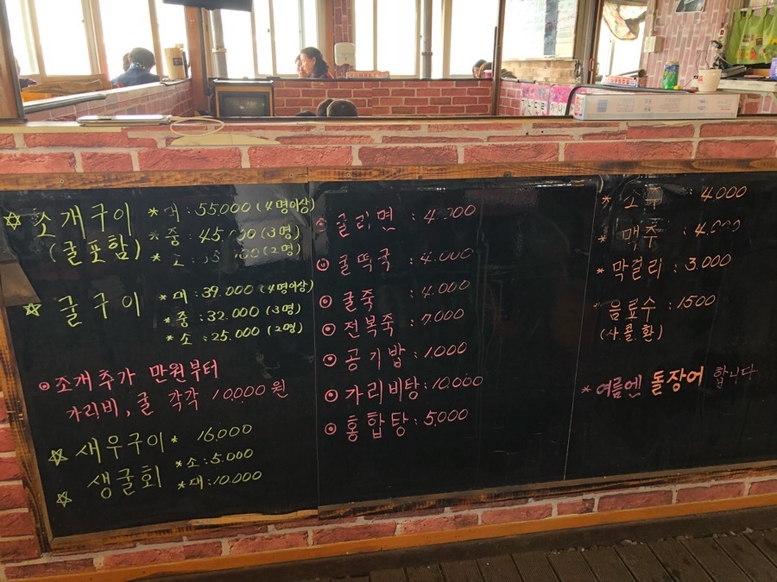 ☆ 조개구이 * 대 : 55000 (4명이상)
(굴포함) * 중 : (3명)
* (2명)
☆ 굴구이 * 대 : 39.000 (4명이상)
* 중 : 32.000 (3명)
* 소 : 25.000 (2명)
⊙ 조개추가 만원부터
가리비, 굴 각각 10000원
☆ 새우구이 * 16,000
☆ 생굴회 * 소 : 5.000
* 대 : 10,000
⊙ 굴라면 :
⊙ 굴떡국 : 4.000
⊙ 굴죽 : 4.000
⊙ 전복죽 : 7,000
⊙ 공기밥 : 1,000
⊙ 가리비탕 : 10,000
⊙ 홍합탕 : 5,000
* : 4.000
* 맥주 :
* 막걸리 : 3.000
* 음료수 : 1500
* 여름엔 돌장어 합니다